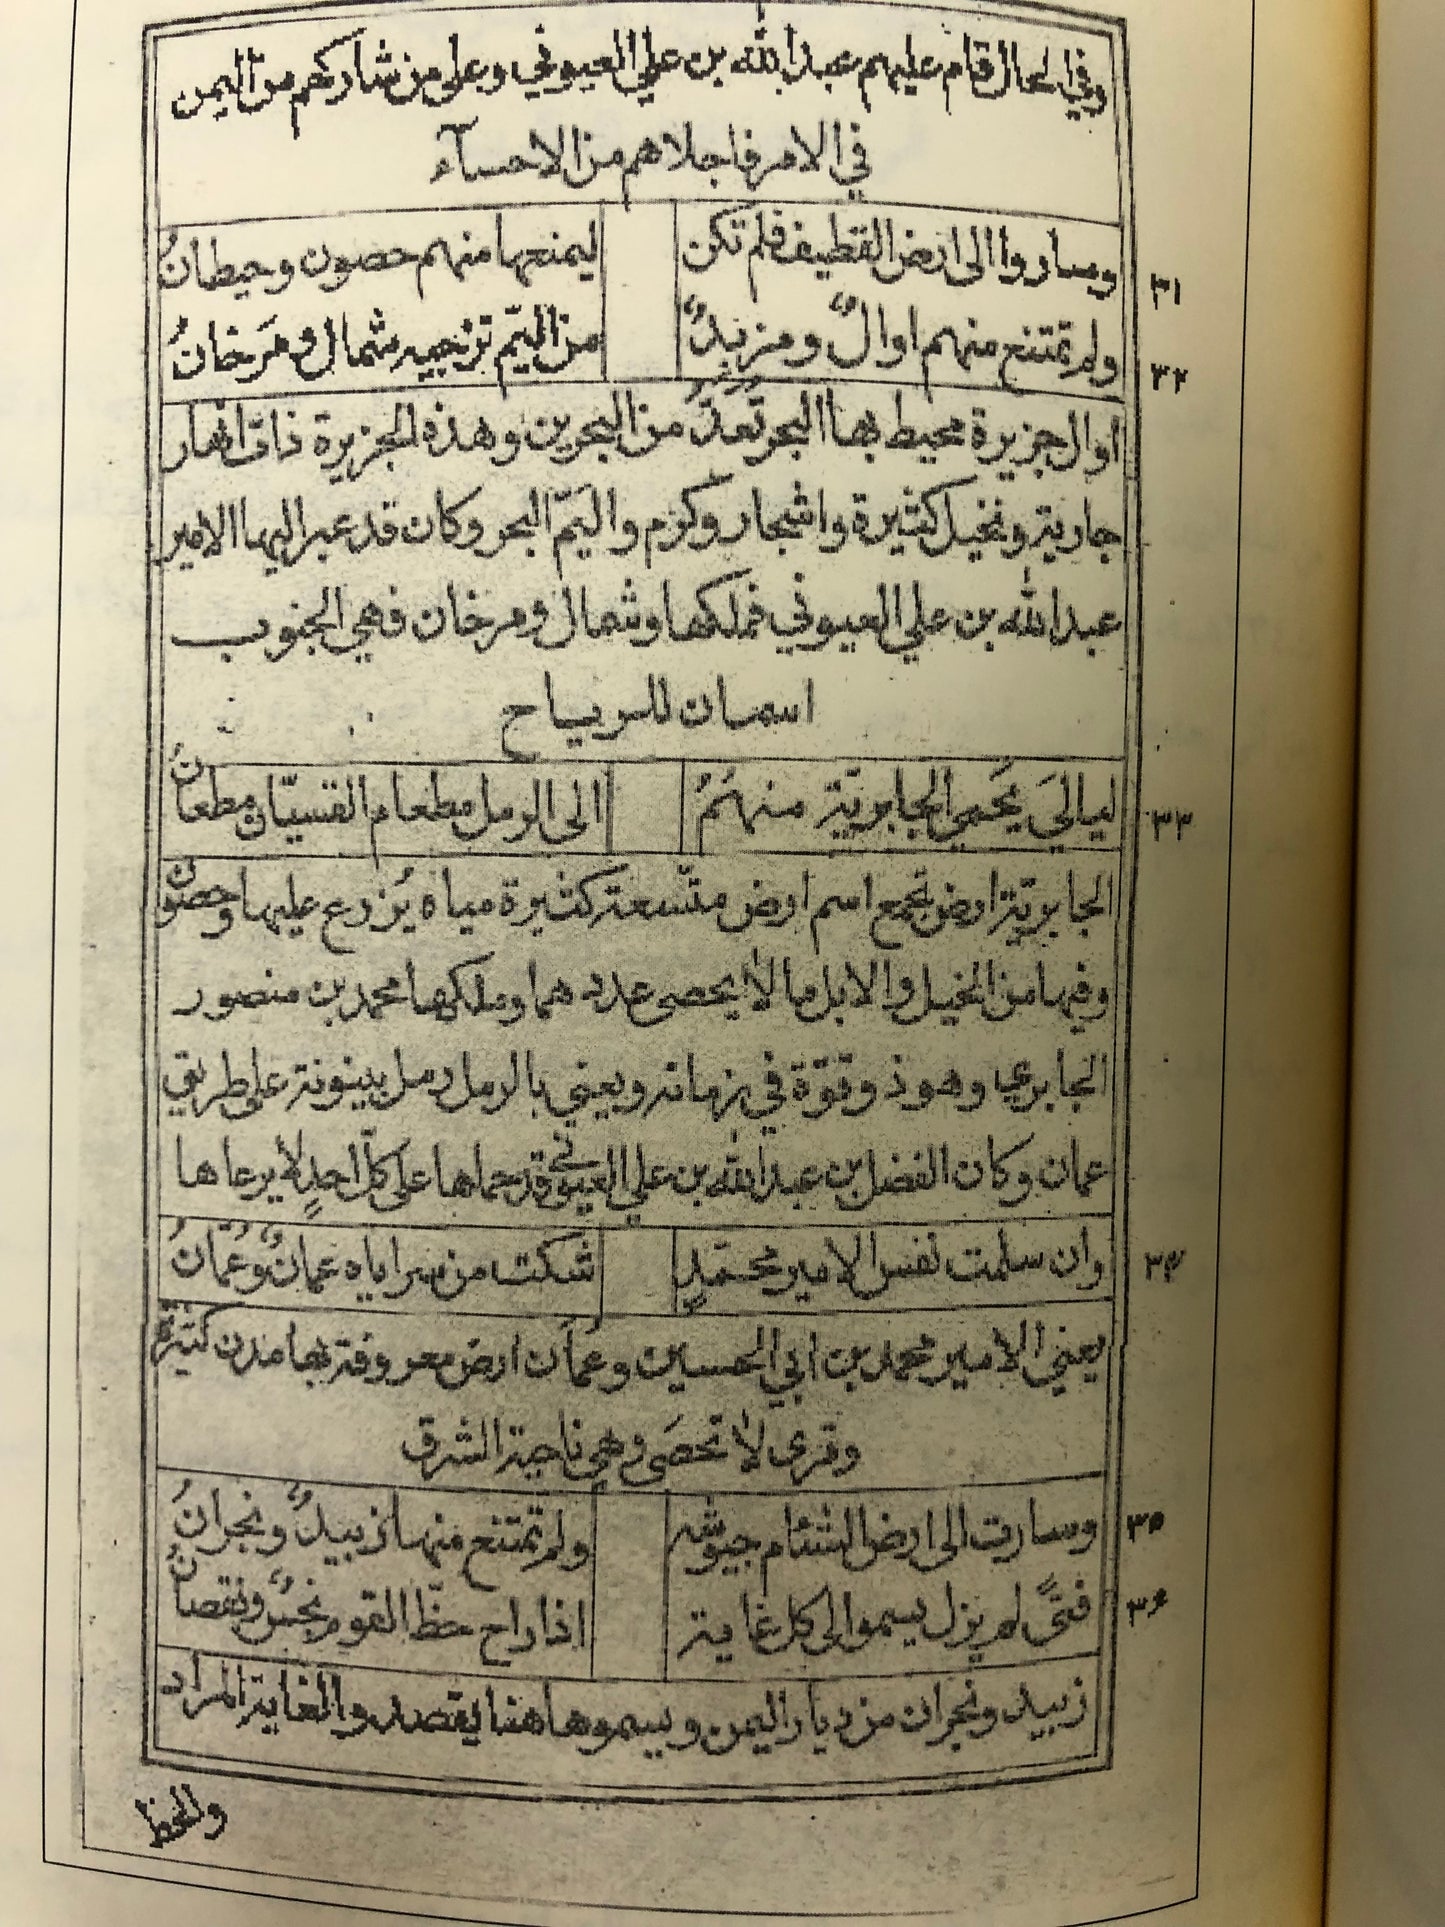 وفي الحال قام عليهم عبد الله بن علي العيوني وعلى من شاركهم من اليمن
في الامر فاجلاهم من الاحسآء
وساروا الى ارض القطيف فلم تكن ليمنعها منهم حصون وحيطانُ ٣١
ولم تمتنع منهم اوالٌ ومزبدٌ من اليّم تزجيه شمال ومَرخانُ ٣٢
اوال جزيرة محيط بها البحر تُعدُّ من البحرين وهذه الجزيرة ذات انهار
جارية ونخيل كثيرة واشجار وكروم واليَمّ البحر وكان قد عبر اليها الامير
عبد الله بن علي العيوني فملكها وشمال ومرخان فهي الجنوب
اسمان للرياح
لياليَ يَحمي الجابريّة منهَمُ الى الرمل مطعام العشيّات مطعانُ ٣٣
الجابريّة ارض تجمع اسم ارض متّسعة كثيرة مياه يُزرع عليها وحصون
وفيها من الخيل والابل ما لا يحصى عددهما وملكها محمد بن منصور
الجابري وهو ذو قوّة في زمانه ويعني بالرمل رمل بينونة على طريق
عمان وكان الفضل بن عبد الله بن علي العيوني قد حماها على كلّ احدٍ لا يرعاها
وان سلمت نفس الامير محمّدٍ شكت من سراياه عمانٌ وعُمّانُ ٣٤
يعني الامير محمد بن ابي الحسين وعمان ارض معروفة بها مدن كثيرة
وقرى لا تحصَى وهي ناحية الشرق
وسارت الى ارض الشئام جيوشه ولم تمتنع منها زبيدٌ ونجرانُ ٣٥
فتىً لم يزل يسموا الى كل غاية اذا راح حظّ القوم بخسٌ ونقصانُ ٣٦
زبيد ونجران من ديار اليمن ويسموها هنا يقصد والغاية المراد
والحظ